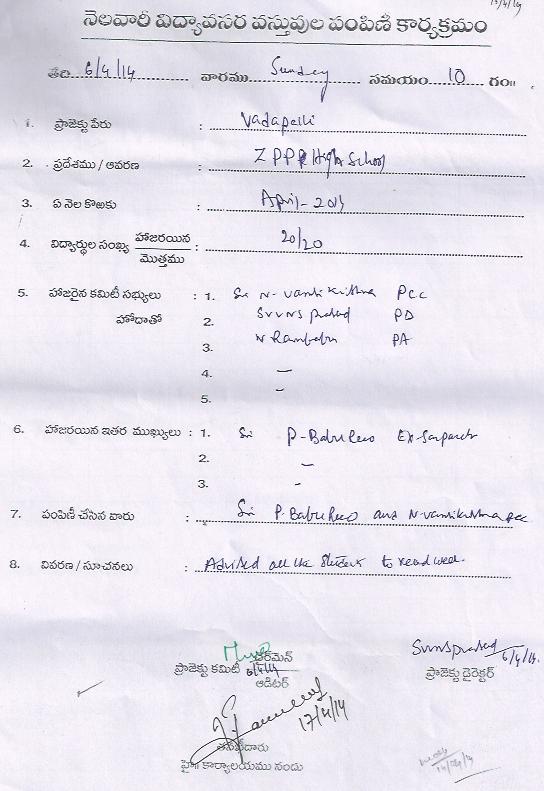 15/4/14
నెలవారీ విద్యావసర వస్తువుల పంపిణీ కార్యక్రమం
తేది 6/4/14 వారము Sunday సమయం 10 గం॥
1. ప్రాజెక్టు పేరు : Vadapalli
2. ప్రదేశము / ఆవరణ : ZPPP High School
3. ఏ నెల కొఱకు : April-2014
4. విద్యార్థుల సంఖ్య హాజరయిన / మొత్తము : 20/20
5. హాజరైన కమిటీ సభ్యులు : 1. Sri N-Vamsi Krishna PCC
హోదాతో 2. SVVNS Prasad PD
3. N Rambabu PA
4. —
5. -
6. హాజరయిన ఇతర ముఖ్యులు : 1. Sri P-Babu Rao Ex-Sarpanch
2. —
3. -
7. పంపిణీ చేసిన వారు : Sri P. Babu Rao and N-Vamsikrishna PCC
8. వివరణ / సూచనలు : Advised all the Student to read well.
ఛైర్మెన్
ప్రాజెక్టు కమిటీ 6/4/14
ఆడిటర్
SVVNSprasad 6/4/14.
ప్రాజెక్టు డైరెక్టర్
17/4/14
తనిఖీదారు
హై॥ కార్యాలయము నందు